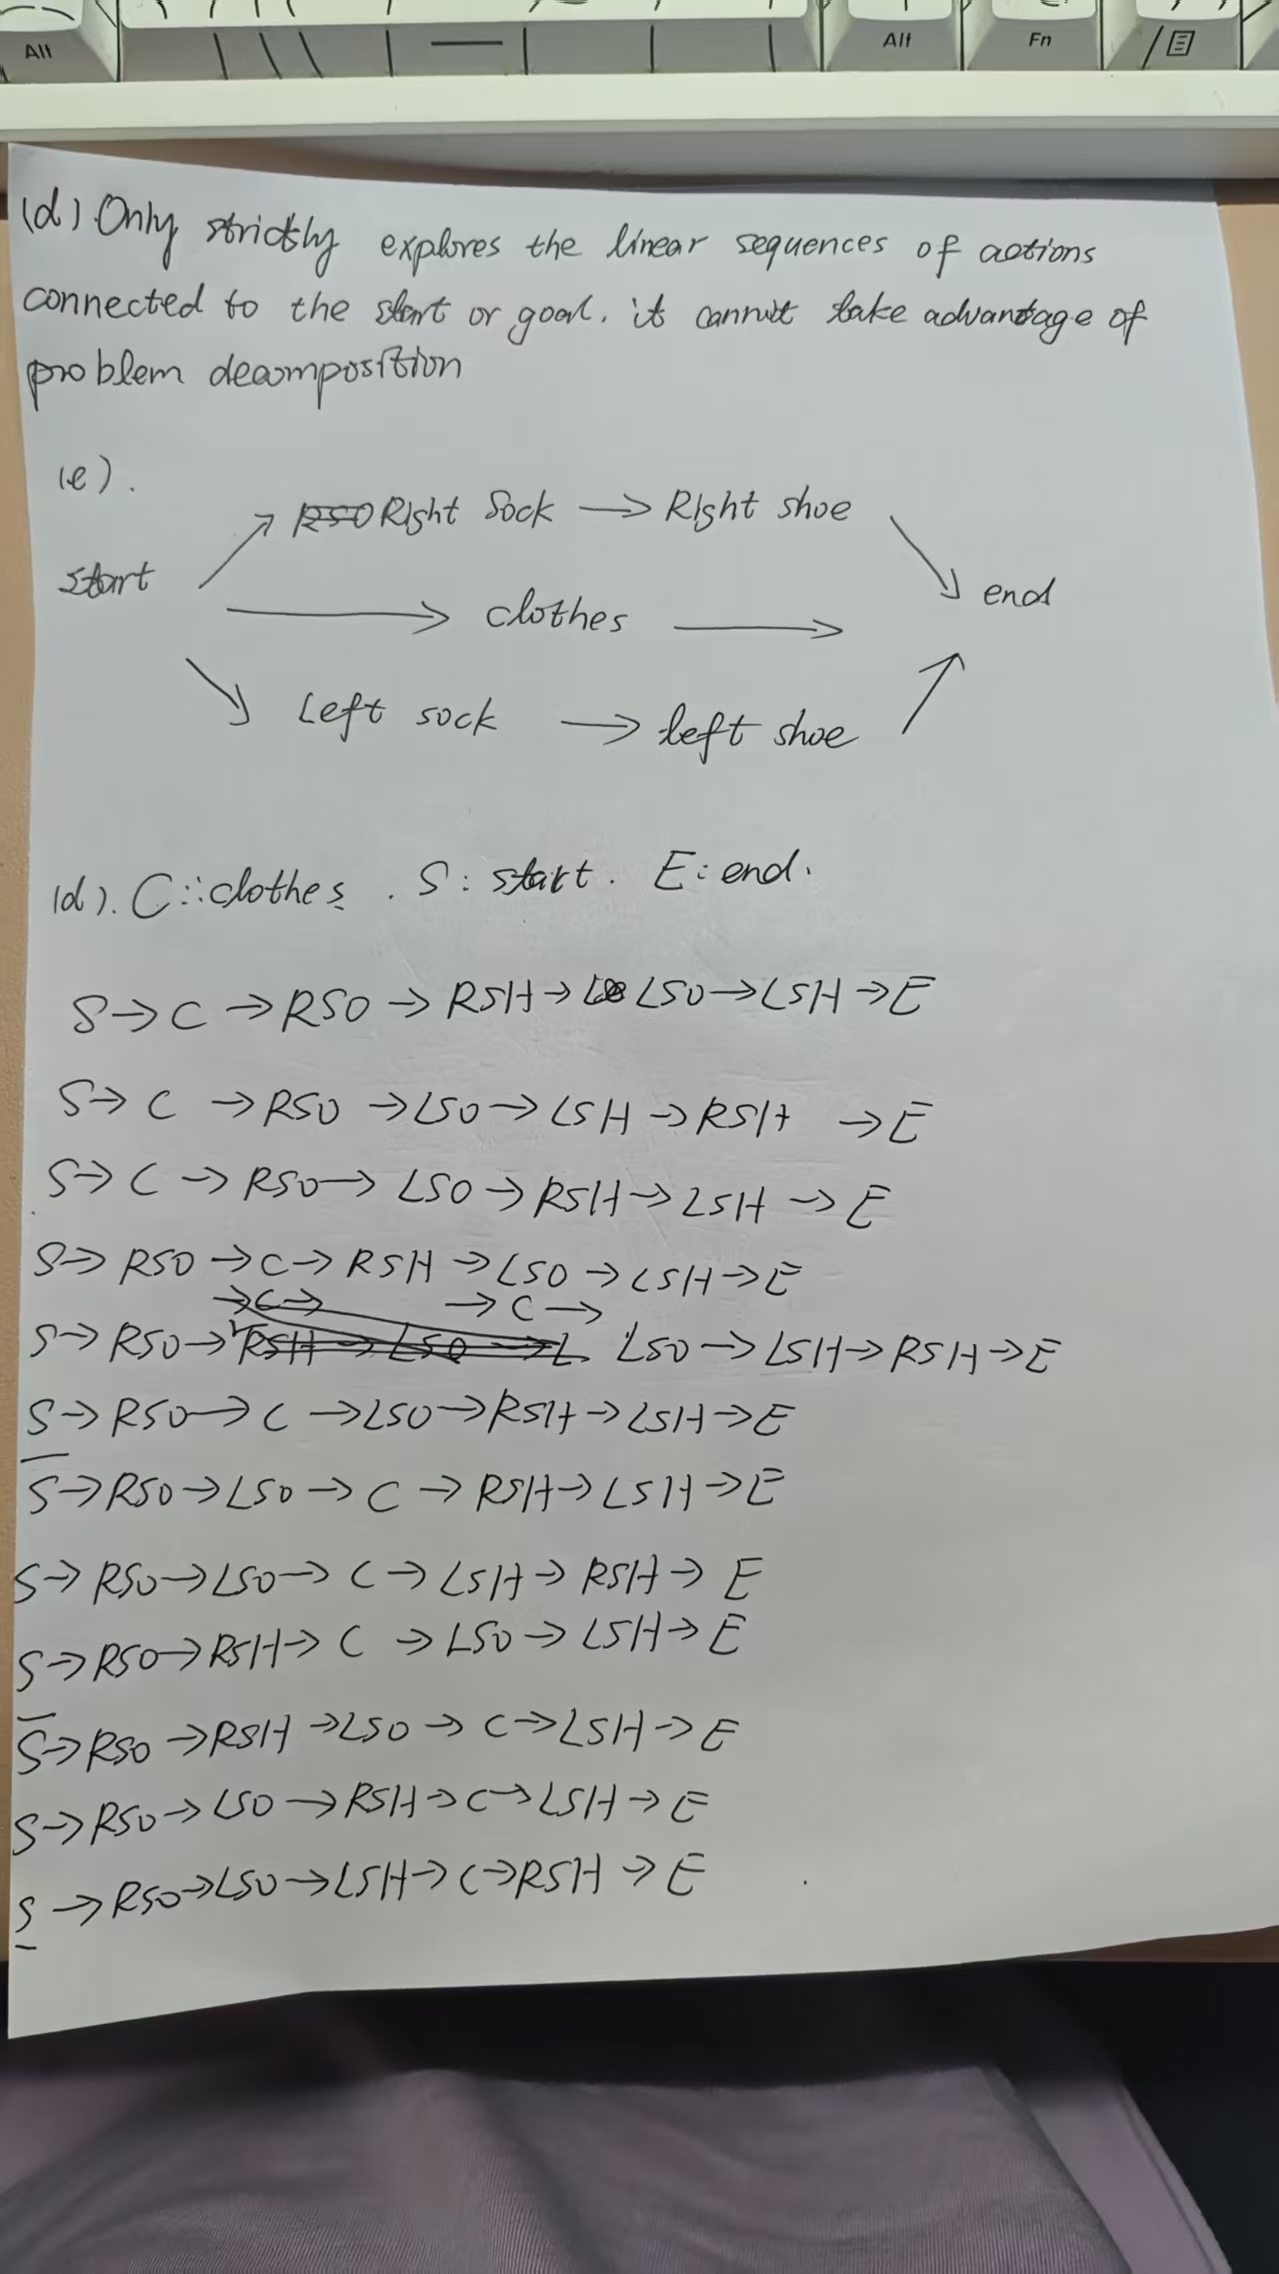 Alt
Alt
Fn
(d) Only strictly explores the linear sequences of actions
connected to the start or goal. it cannot take advantage of
problem decomposition
(e).
RSO Right Sock → Right shoe
start
clothes
end
Left sock → left shoe
(d). C: clothes. S: start. E: end.
S→ C → RSO → RSH → LSO → LSH → E
S→ C → RSO → LSO → LSH → RSH → E
S→ C → RSO → LSO → RSH → LSH → E
S→ RSO → C → RSH → LSO → LSH → E
→ C → → C →
S→ RSO → RSH → LSO → L LSO → LSH → RSH → E
S→ RSO → C → LSO → RSH → LSH → E
S→ RSO → LSO → C → RSH → LSH → E
S→ RSO → LSO → C → LSH → RSH → E
S→ RSO → RSH → C → LSO → LSH → E
S→ RSO → RSH → LSO → C → LSH → E
S→ RSO → LSO → RSH → C → LSH → E
S → RSO → LSO → LSH → C → RSH → E